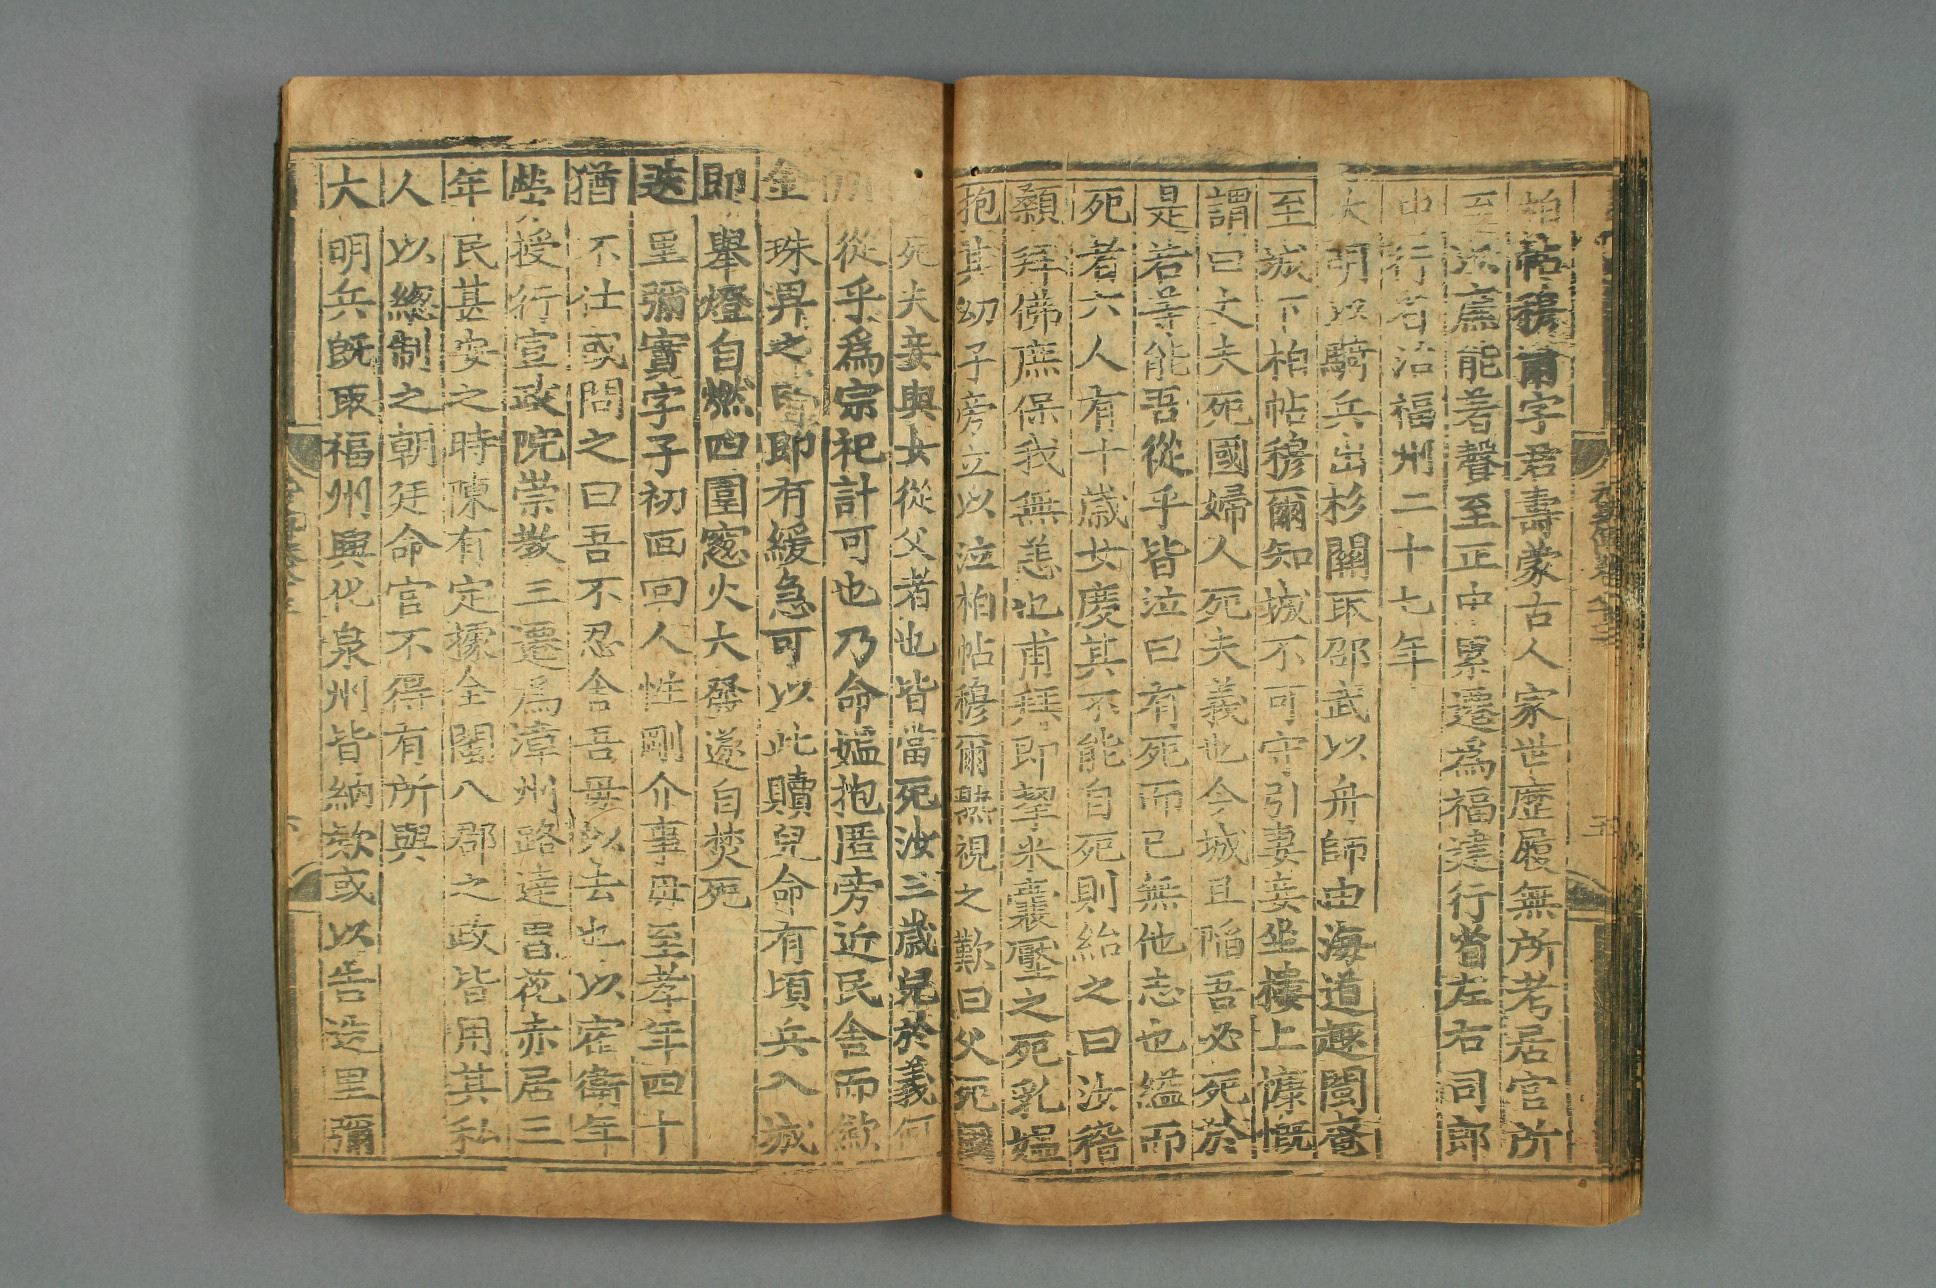 柏帖穆爾字君壽蒙古人家世歷履無所考居官所
至以廉能著聲至正中累遷爲福建行省左右司郎
中行省治福州二十七年
大明以騎兵出杉關取邵武以舟師由海道趨閩奄
至城下柏帖穆爾知城不可守引妻妾坐樓上慷慨
謂曰丈夫死國婦人死夫義也今城且陷吾必死於
是若等能吾從乎皆泣曰有死而已無他志也縊而
死者六人有十歲女度其不能自死則紿之曰汝稽
顙拜佛庶保我無恙也甫拜即挈米囊壓之死乳媼
抱其幼子旁立以泣柏帖穆爾熟視之歎曰父死國
死夫妾與女從父者也皆當死汝三歲兒於義何
所從乎爲宗祀計可也乃命媼抱匿旁近民舍而斂
金珠畀之曰即有緩急可以此贖兒命有頃兵入城
即舉燈自燃四圍窓火大發遂自焚死
迭里彌實字子初回回人性剛介事母至孝年四十
猶不仕或問之曰吾不忍舍吾母以去也以宿衛年
勞授行宣政院崇教三遷爲漳州路達魯花赤居三
年民甚安之時陳有定據全閩八郡之政皆用其私
人以總制之朝廷命官不得有所與
大明兵既取福州興化泉州皆納欵或以告迭里彌